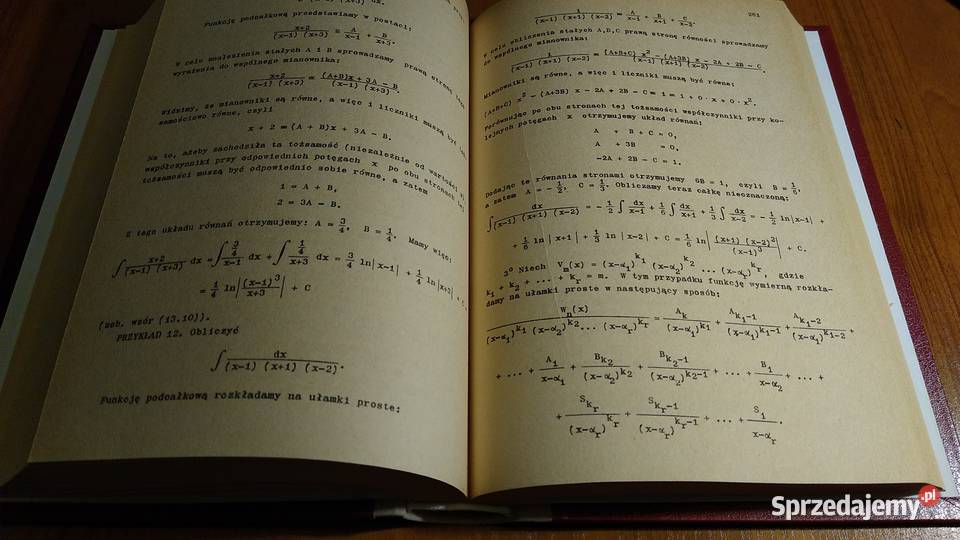 Funkcję podcałkową przedstawiamy w postaci:
x+2 / (x-1) (x+3) = A / x-1 + B / x+3 .
W celu znalezienia stałych A i B sprowadzamy prawą stronę
wyrażenia do wspólnego mianownika:
x+2 / (x-1) (x+3) = (A+B)x + 3A - B / (x-1) (x+3) .
Widzimy, że mianowniki są równe, a więc i liczniki muszą być
samościowo równe, czyli
x + 2 = (A + B)x + 3A - B.
Na to, ażeby zachodziła ta tożsamość (niezależnie od wartości
współczynniki przy odpowiednich potęgach x po obu stronach tej
tożsamości muszą być odpowiednio sobie równe, a zatem
1 = A + B,
2 = 3A - B.
Z tego układu równań otrzymujemy: A = 3/4, B = 1/4. Mamy więc:
∫ x+2 / (x-1) (x+3) dx = ∫ 3/4 / x-1 dx + ∫ 1/4 / x+3 dx = 3/4 ln|x-1| + 1/4 ln|x+3| +
= 1/4 ln| (x-1)³ / x+3 | + C
(zob. wzór (13.10)).
PRZYKŁAD 12. Obliczyć
∫ dx / (x-1) (x+1) (x-2) .
Funkcję podcałkową rozkładamy na ułamki proste:
261
1 / (x-1) (x+1) (x-2) = A / x-1 + B / x+1 + C / x-2 .
W celu obliczenia stałych A,B,C prawą stronę równości sprowadzamy
do wspólnego mianownika:
/ (x-1) (x+1) (x-2) = (A+B+C) x² - (A+3B) x - 2A + 2B - C / (x-1) (x+1) (x-2) .
Mianowniki są równe, a więc i liczniki muszą być równe:
(A+B+C) x² - (A+3B) x - 2A + 2B - C = 1 = 1 + 0·x + 0·x².
Porównując po obu stronach tej tożsamości współczynniki przy ko-
lejnych potęgach x otrzymujemy układ równań:
A + B + C = 0,
A + 3B = 0,
-2A + 2B - C = 1.
Dodając te równania stronami otrzymujemy 6B = 1, czyli B = 1/6,
a zatem A = - 1/2, C = 1/3. Obliczamy teraz całkę nieoznaczoną:
∫ dx / (x-1) (x+1) (x-2) = - 1/2 ∫ dx / x-1 + 1/6 ∫ dx / x+1 + 1/3 ∫ dx / x-2 = - 1/2 ln|x-1| +
+ 1/6 ln |x+1| + 1/3 ln |x-2| + C = 1/6 ln| (x+1) (x-2)² / (x-1)³ | + C.
3° Niech V_m(x) = (x-α₁)^k₁ (x-α₂)^k₂ ... (x-α_r)^k_r , gdzie
k₁ + k₂ + ... + k_r = m. W tym przypadku funkcję wymierną rozkła-
damy na ułamki proste w następujący sposób:
W_n(x) / (x-α₁)^k₁ (x-α₂)^k₂ ... (x-α_r)^k_r = A_k / (x-α₁)^k₁ + A_k₁-1 / (x-α₁)^k₁-1 + A_k₁-2 / (x-α₁)^k₁-2 +
+ ... + A₁ / x-α₁ + B_k₂ / (x-α₂)^k₂ + B_k₂-1 / (x-α₂)^k₂-1 + ... + B₁ / x-α₂ + ... +
+ S_k_r / (x-α_r)^k_r + S_k_r-1 / (x-α_r)^k_r-1 + ... + S₁ / x-α_r .
Sprzedajemy.pl